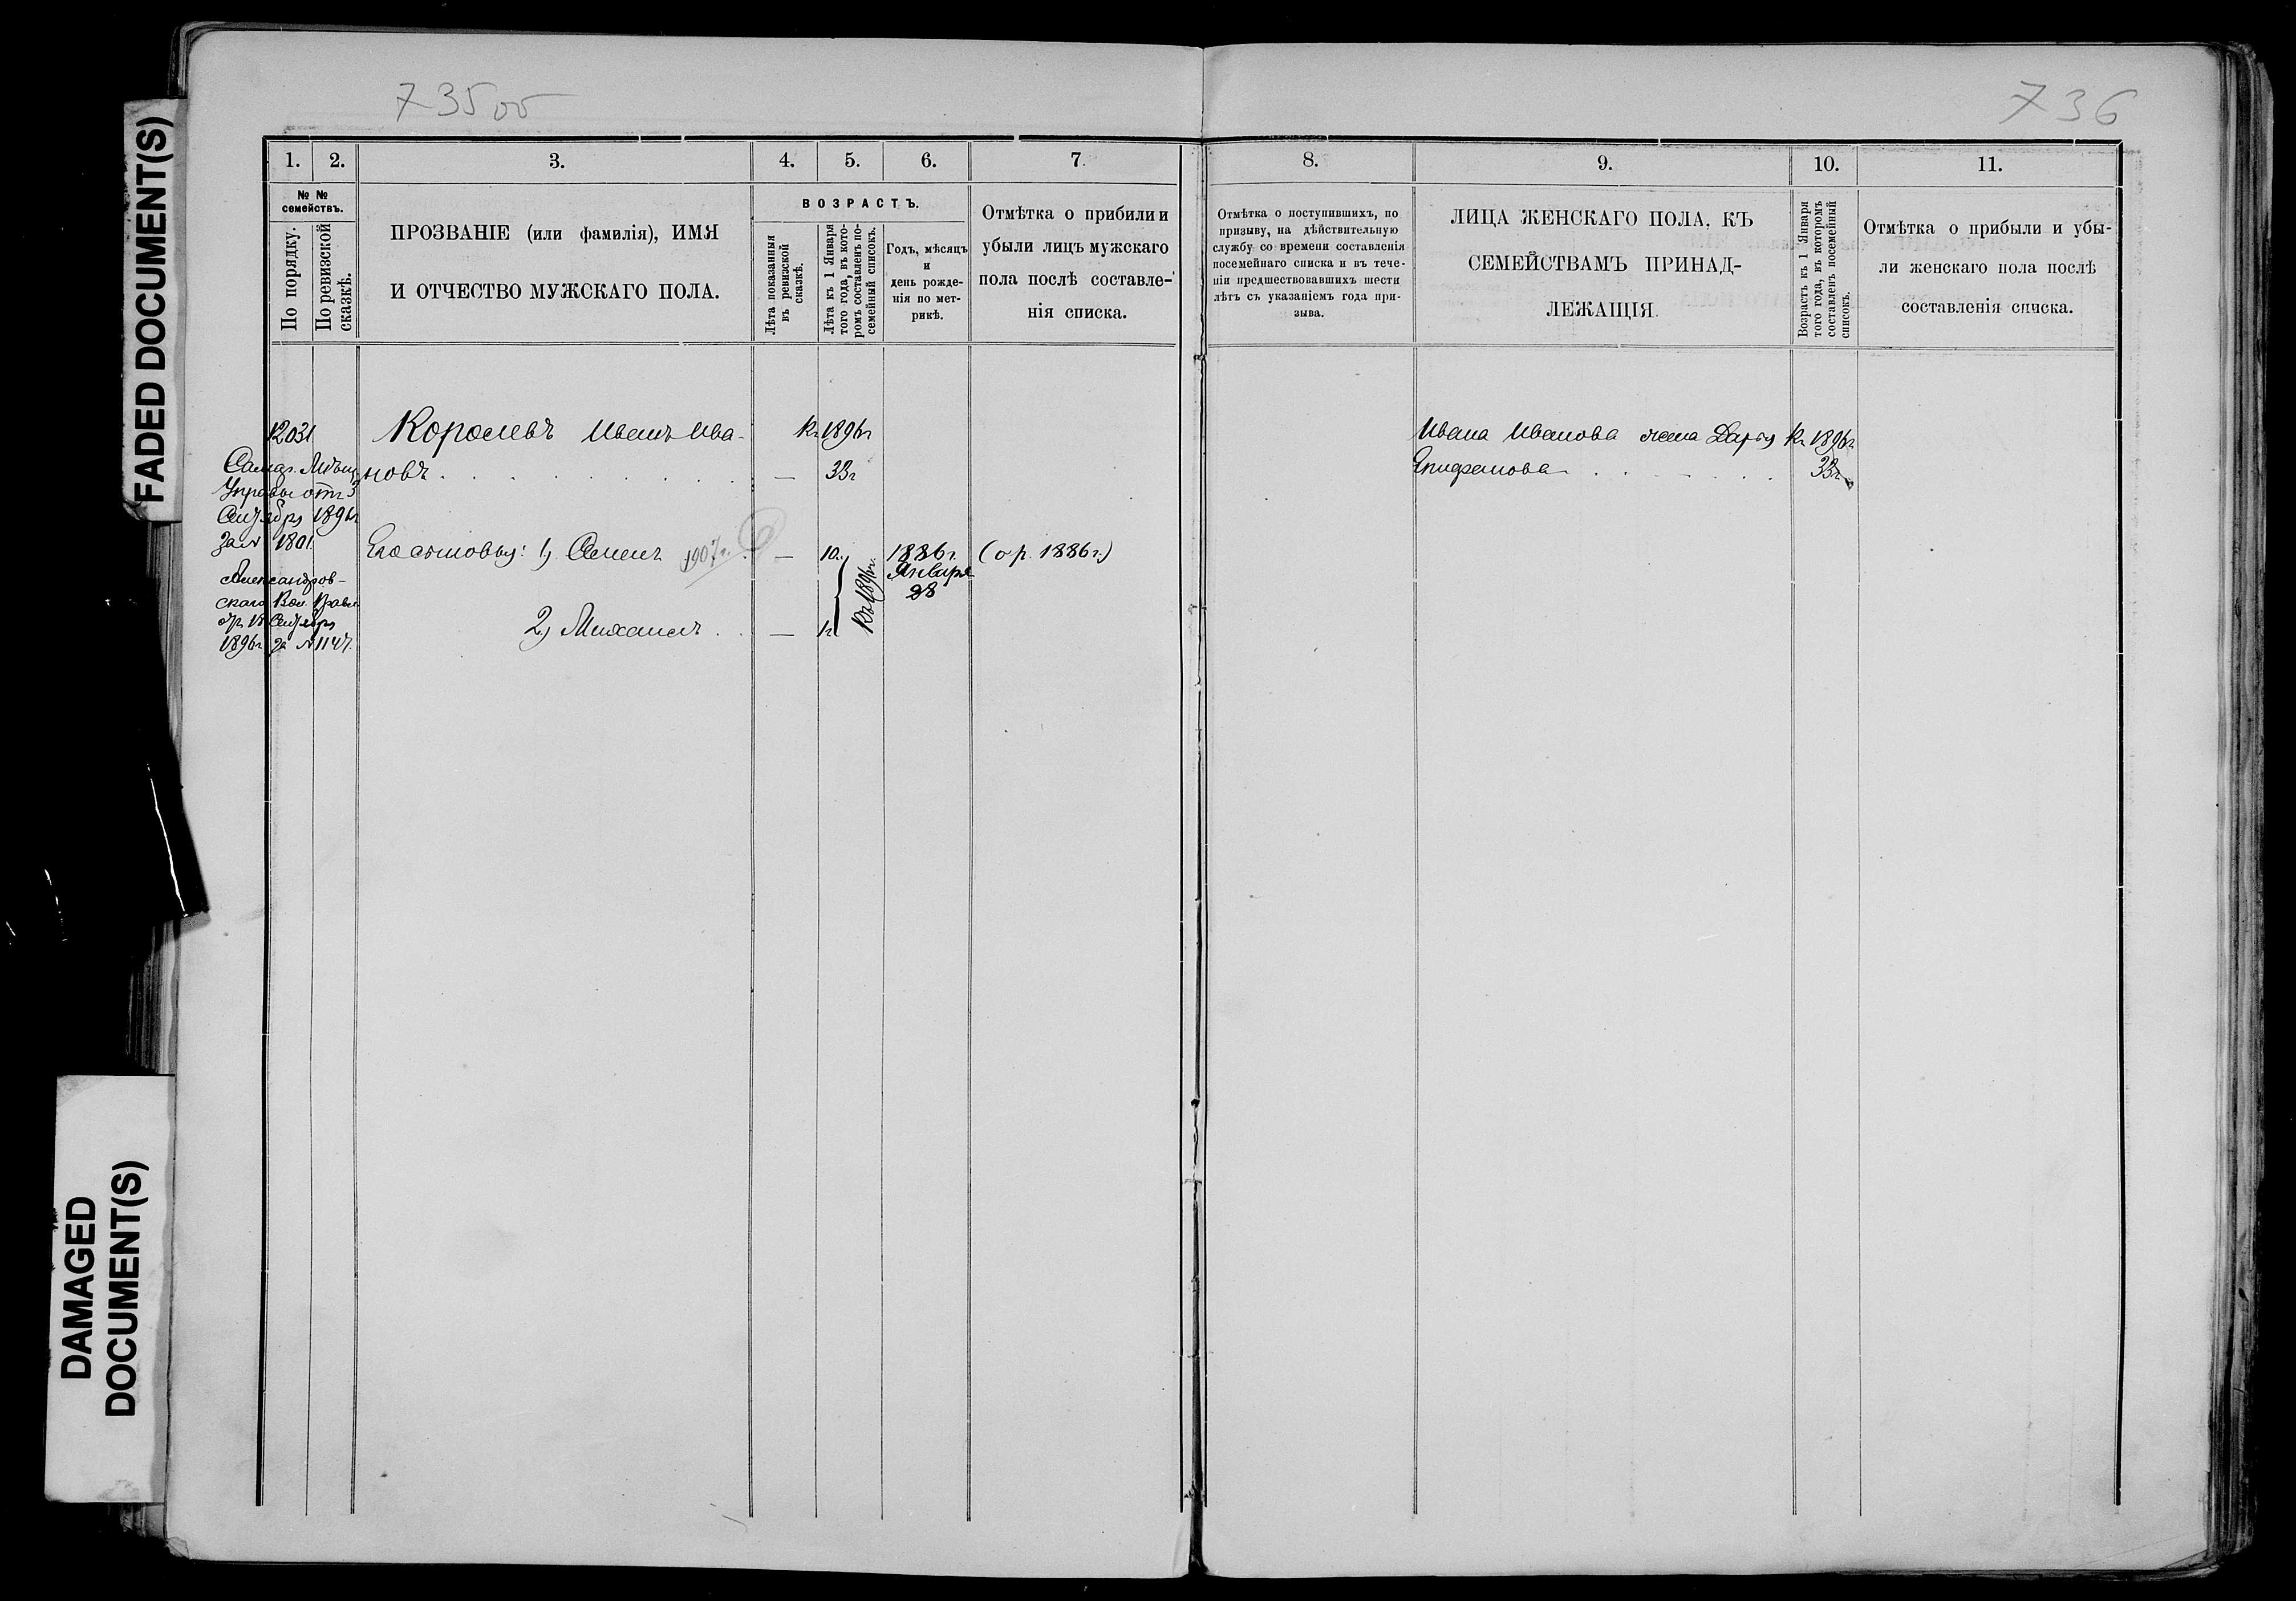 FADED DOCUMENT(S)
DAMAGED
DOCUMENT(S)
735об
736
1. 2. 3. 4. 5. 6. 7. 8. 9. 10. 11.
№ №
семействъ.
По порядку.
По ревизской
сказкѣ.
ПРОЗВАНІЕ (или фамилія), ИМЯ
И ОТЧЕСТВО МУЖСКАГО ПОЛА.
ВОЗРАСТЪ.
Лѣта показанныя
въ ревизской
сказкѣ.
Лѣта къ 1 Января
того года, въ кото-
ромъ составленъ по-
семейный списокъ.
Годъ, мѣсяцъ
и
день рожде-
нія по мет-
рикѣ.
Отмѣтка о прибыли и
убыли лицъ мужскаго
пола послѣ составле-
нія списка.
Отмѣтка о поступившихъ, по
призыву, на дѣйствительную
службу со времени составленія
посемейнаго списка и въ тече-
ніи предшествовавшихъ шести
лѣтъ съ указаніемъ года при-
зыва.
ЛИЦА ЖЕНСКАГО ПОЛА, КЪ
СЕМЕЙСТВАМЪ ПРИНАД-
ЛЕЖАЩІЯ.
Возрастъ къ 1 Января
того года, въ которомъ
составленъ посемейный
списокъ.
Отмѣтка о прибыли и убы-
ли женскаго пола послѣ
составленія списка.
12031
Королевъ Иванъ Ива-
новъ
Къ 1896г
33г
Мѣщ.
Управы отъ 3
Сентября 1896г
за № 1801.
Александров-
скаго Вол. Правл.
Сентября
1896г за № 1147.
Его сыновья: 1, Семенъ 1907г.
10л.
1886г.
Января
28
(о р. 1886г.)
2, Михаилъ
1г
Къ 1896г.
Ивана Иванова жена Дарья
Епифанова
Къ 1896г.
33г